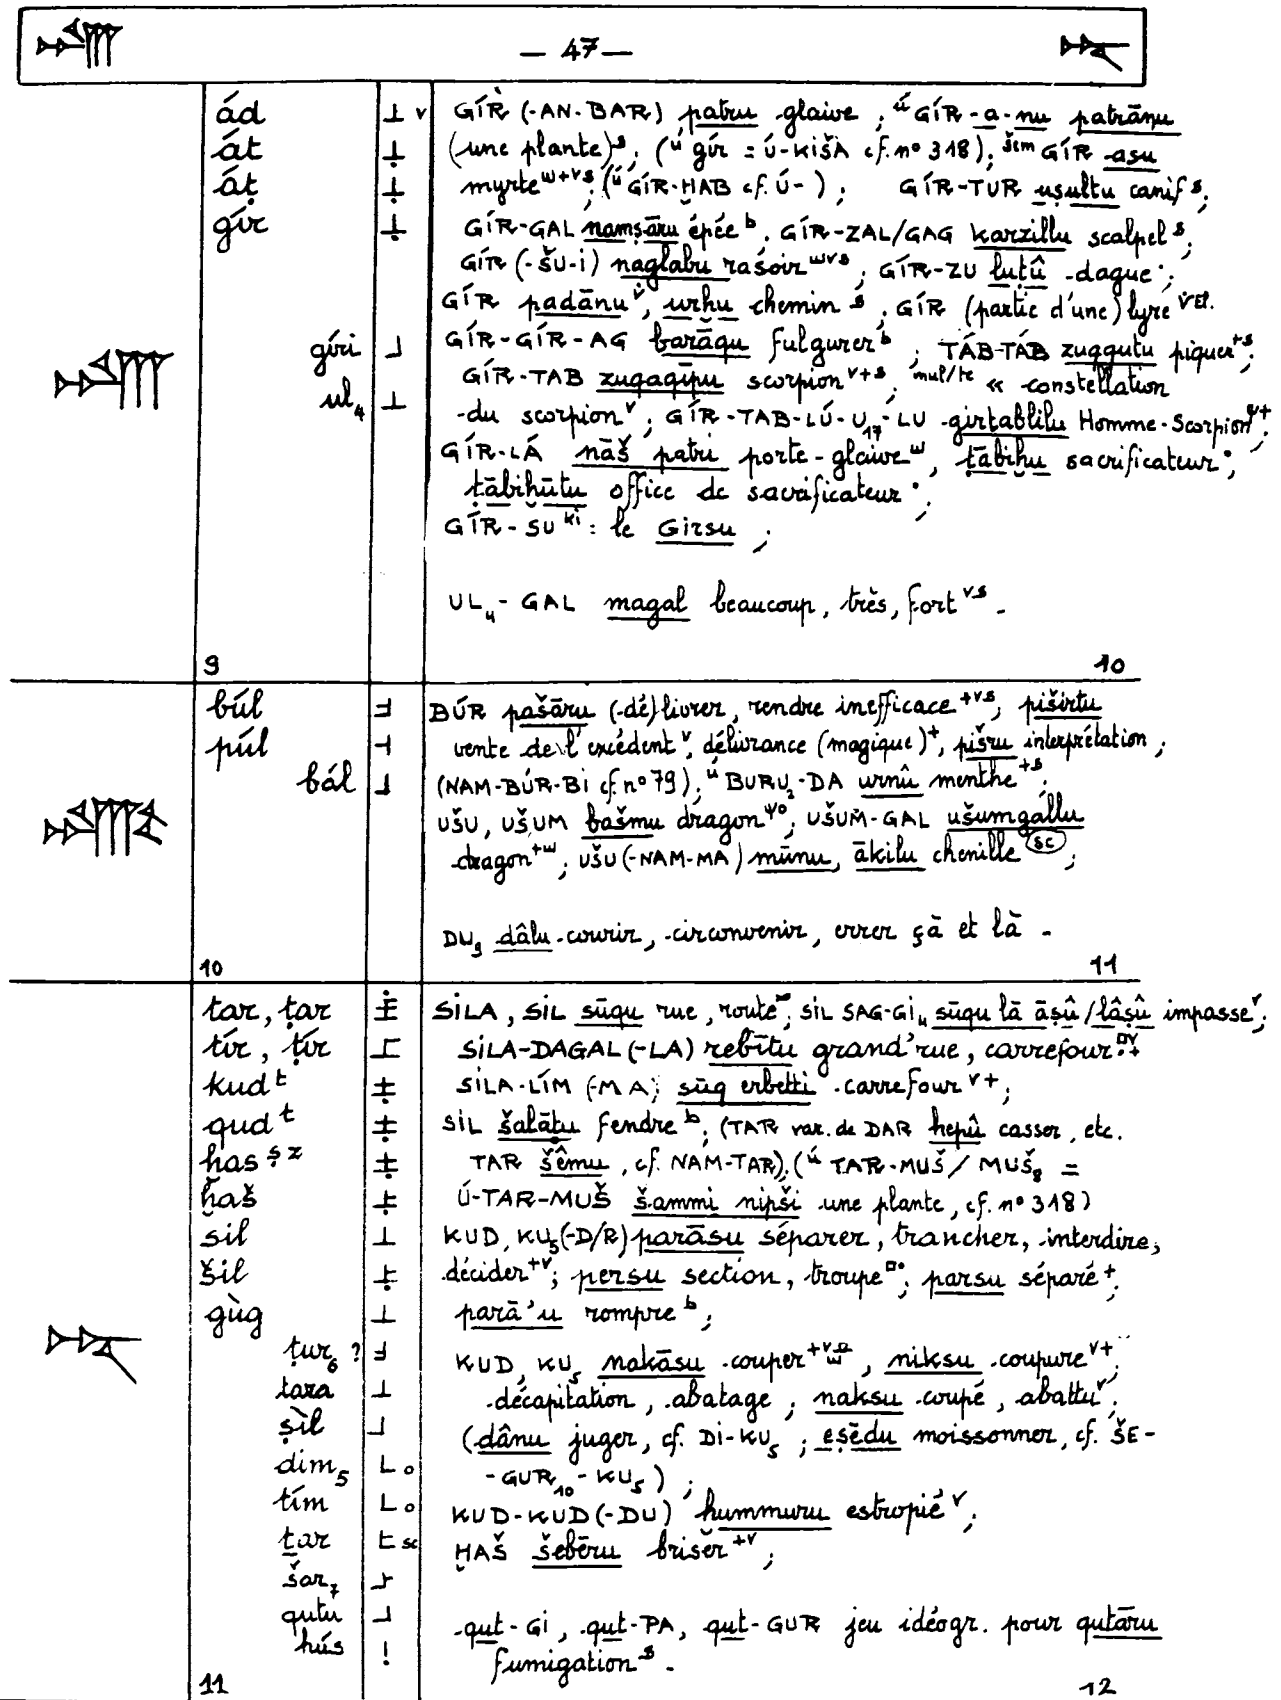 — 47 —
ád GÍR (-AN-BAR) patru glaive ; ú GÍR-a-nu patrānu
át (une plante) s ; (ú gír = Ú-KIŠÌ cf. nº 318) ; šim GÍR asu
áṭ myrte w+vs ; (ú GÍR-ḪAB cf. Ú- ) ; GÍR-TUR uṣultu canif s ;
gír GÍR-GAL namṣāru épée b ; GÍR-ZAL/GAG karzillu scalpel s ;
GÍR (-ŠU-I) naglabu rasoir wvs ; GÍR-ZU luṭû dague ;
GÍR padānu v, urḫu chemin s ; GÍR (partie d'une) lyre v El.
gíri GÍR-GÍR-AG barāqu fulgurer b ; TÁB-TÁB zuqqutu piquer +s ;
GÍR-TAB zuqaqīpu scorpion v+s ; mul/te « constellation
ul₄ du scorpion v ; GÍR-TAB-LÚ-U₁₇-LU girtablilu Homme-Scorpion ;
GÍR-LÁ nāš patri porte-glaive w, ṭābiḫu sacrificateur ° ;
ṭābiḫūtu office de sacrificateur ° ;
GÍR-SU ki : le Girsu ;
UL₄-GAL magal beaucoup, très, fort vs .
9 10
búl BÚR pašāru (-dé)livrer, rendre inefficace +vs ; piširtu
púl vente de l'excédent v, délivrance (magique) +, pišru interprétation ;
bál (NAM-BÚR-BI cf. nº 79) ; ú BURU₂-DA urnû menthe +s ;
UŠU, UŠUM bašmu dragon ; UŠUM-GAL ušumgallu
dragon +w ; UŠU (-NAM-MA) mūnu, ākilu chenille sc ;
DU₉ dâlu courir, circonvenir, errer çà et là .
10 11
tar, ṭar SILA, SIL sūqu rue, route ; SIL SAG-GI₄ sūqu lā āṣû / lâṣû impasse v ;
tír, ṭír SILA-DAGAL (-LA) rebītu grand'rue, carrefour
kud t SILA-LÍM (-MA) sūq erbetti carrefour v+ ;
qud t SIL šalāṭu fendre b ; (TAR var. de DAR ḫepû casser, etc.
ḫas ṣ z TAR šêmu, cf. NAM-TAR) ; (ú TAR-MUŠ / MUŠ₈ =
ḫaš Ú-TAR-MUŠ šammi nipši une plante, cf. nº 318)
sil KUD, KU₅ (-D/R) parāsu séparer, trancher, interdire,
šil décider +v ; persu section, troupe ; parsu séparé + ;
gùg parā'u rompre b ;
ṭur₆ ? KUD, KU₅ nakāsu couper, niksu coupure v+ ;
tara décapitation, abatage ; naksu coupé, abattu v ;
ṣìl (dânu juger, cf. DI-KU₅ ; eṣēdu moissonner, cf. ŠE-
dim₅ -GUR₁₀-KU₅) ;
tím KUD-KUD (-DU) ḫummuru estropié v ;
ṯar sc ḪAŠ šebēru briser +v ;
šar₇
qutu qut-GI, qut-PA, qut-GUR jeu idéogr. pour qutāru
ḫús ! fumigation s .
11 12